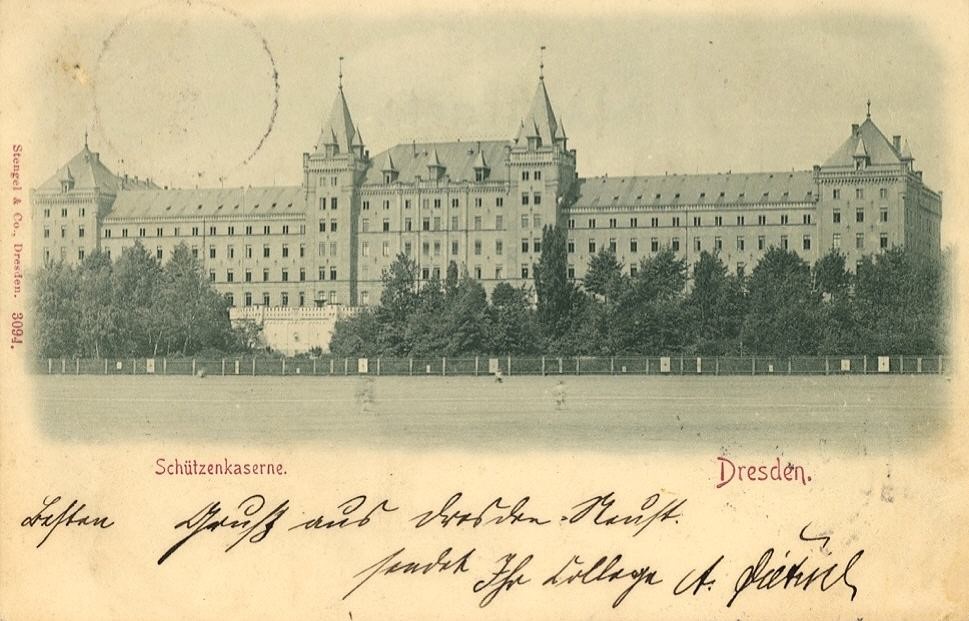 Stengel & Co., Dresden. 3094.
Schützenkaserne.
Dresden.
Besten Gruß aus Dresden-Neust.
sendet Ihr College A.